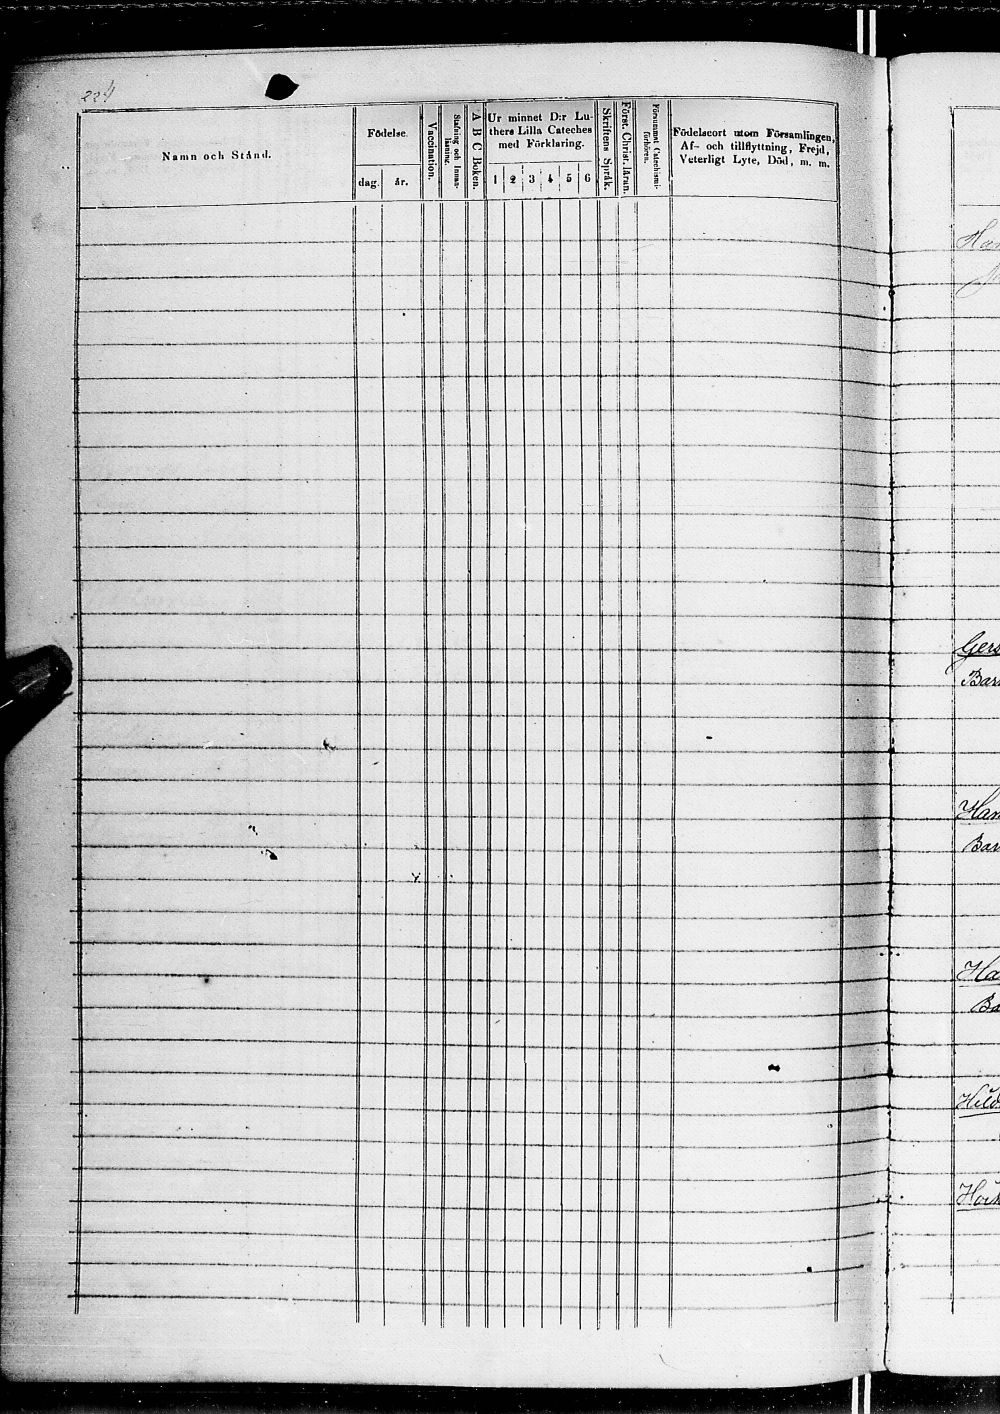 224
Namn och Stånd.
Födelse.
dag.
år.
Vaccination.
Stafning och Innan-
läsning.
A B C Boken.
Ur minnet D:r Lu-
thers Lilla Cateches
med Förklaring.
1 2 3 4 5 6
Skriftens Språk.
Först. Christ. läran.
Försummat Catechismi-
förhören.
Födelseort utom Församlingen,
Af- och tillflyttning, Frejd,
Veterligt Lyte, Död, m. m.